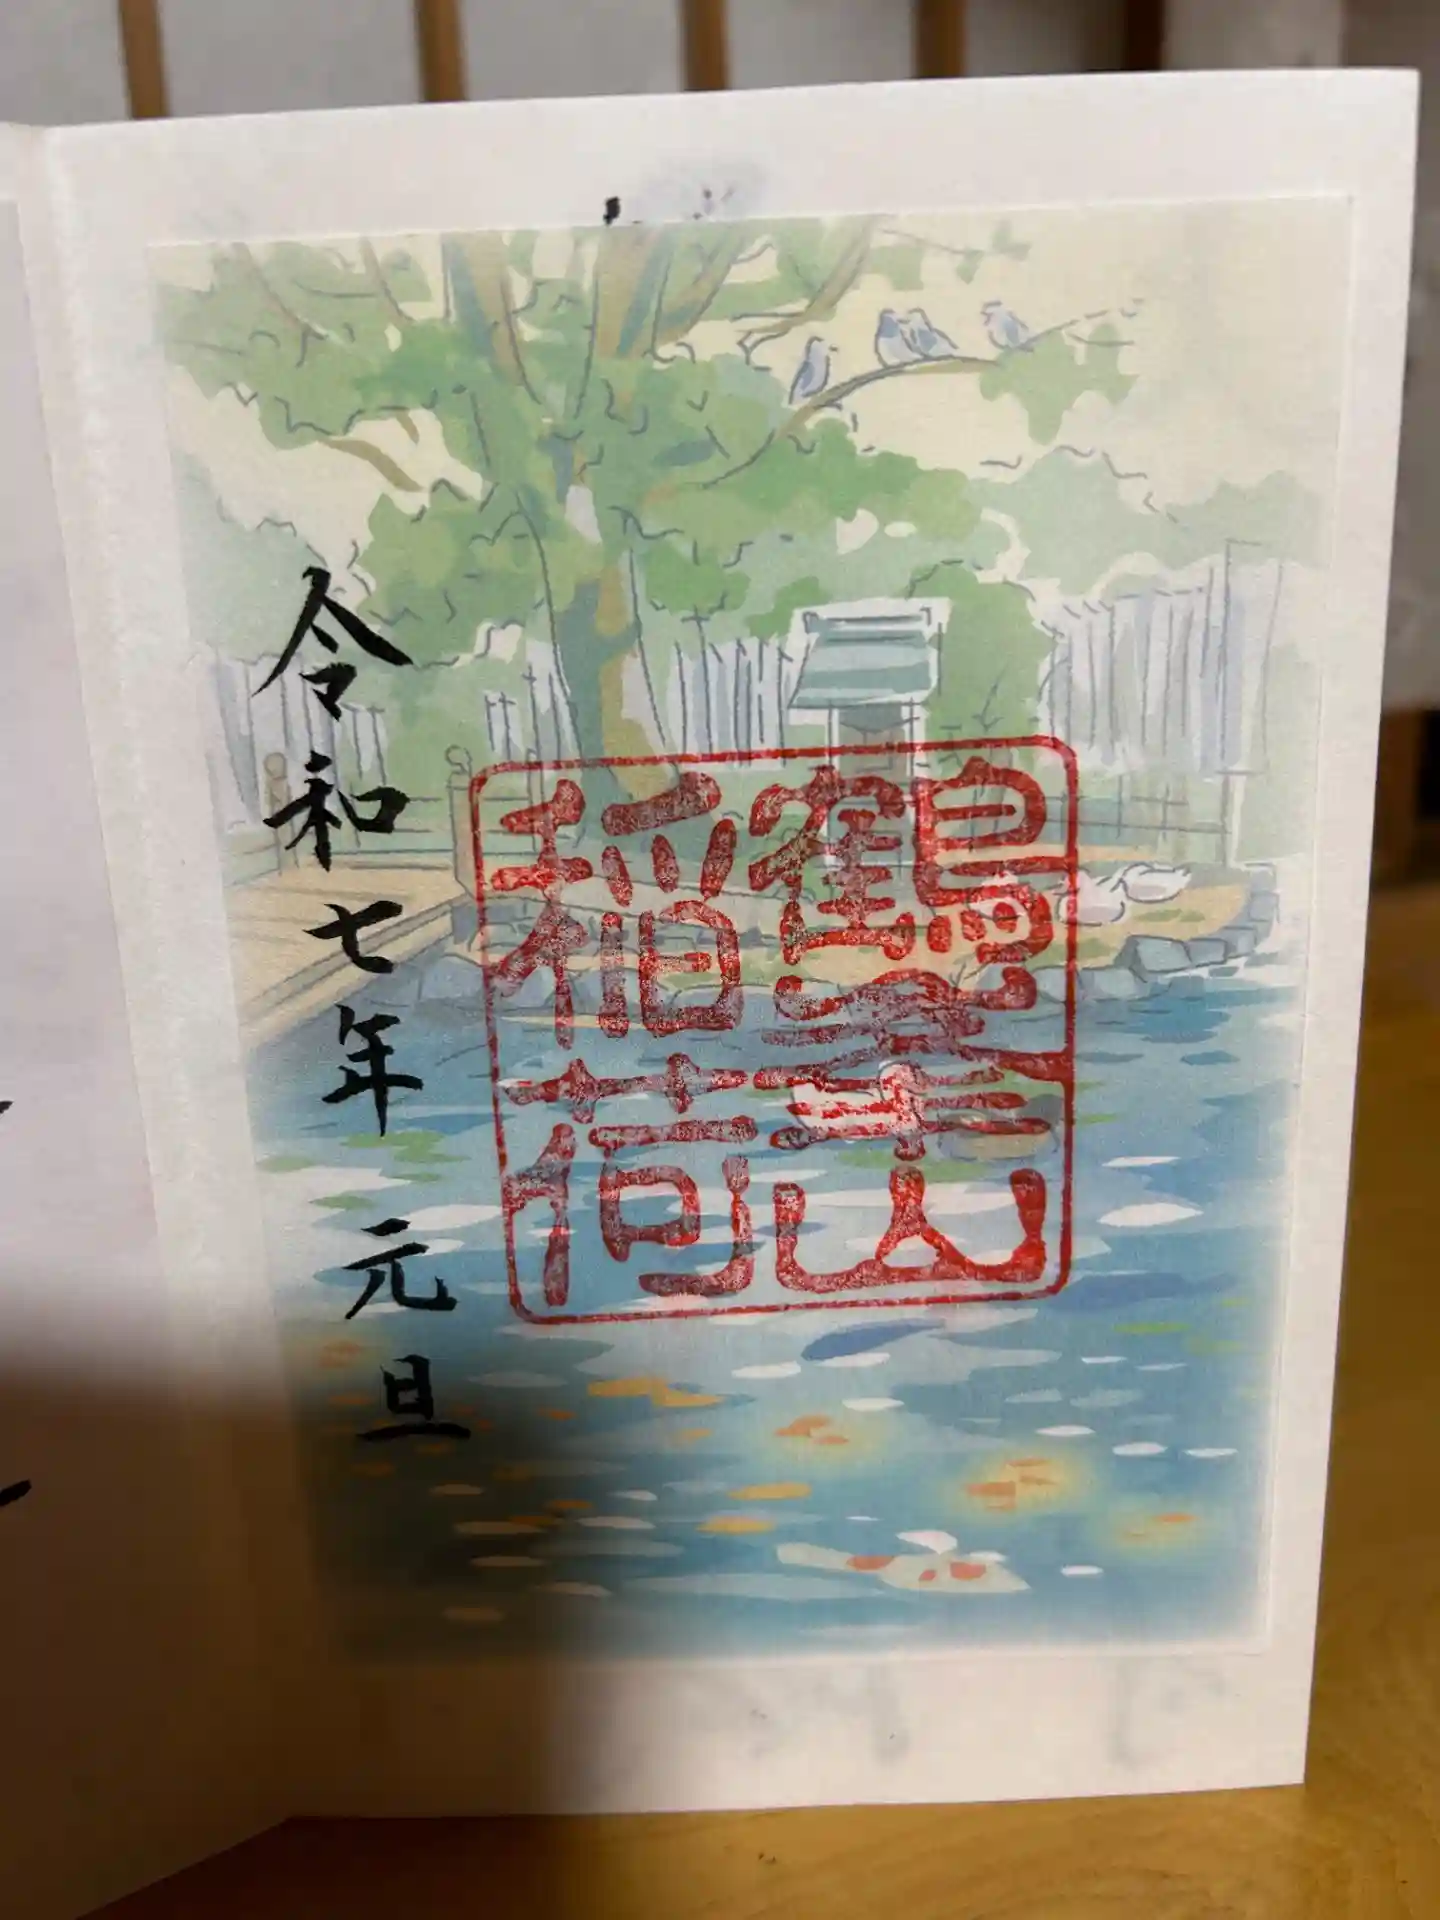 鶴峯
稲荷
令和七年 元旦